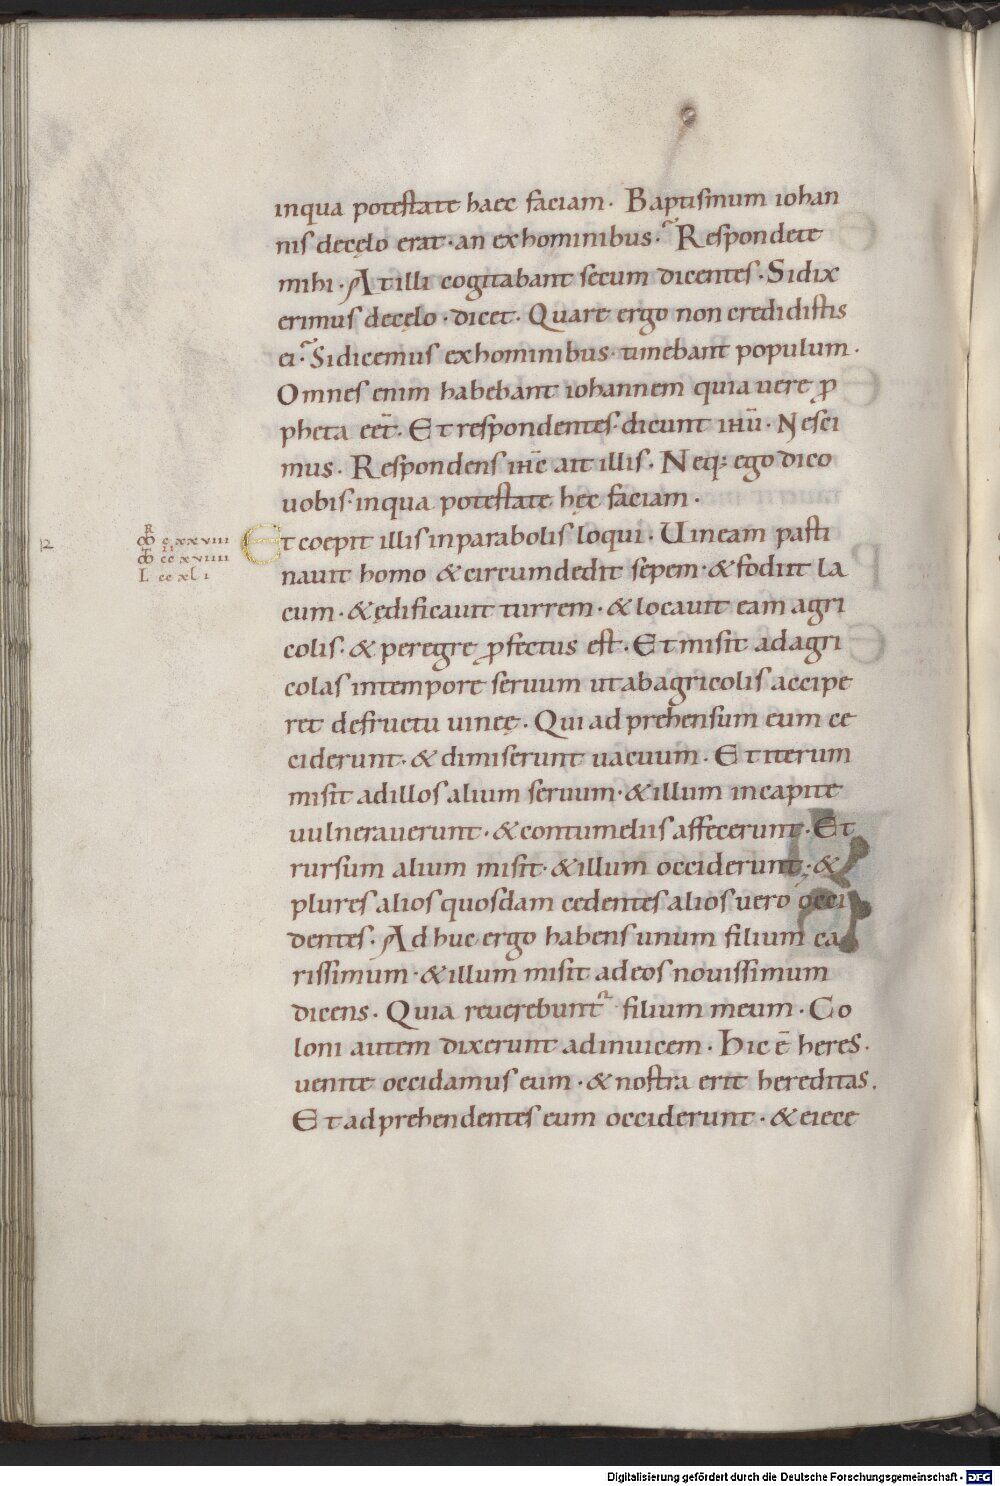 inqua potestate haec faciam. Baptismum iohan
nis decęlo erat· an exhominibus·? Respondete
mihi· At illi cogitabant secum dicentes· Sidix
erimus decęlo· dicet· Quare ergo non credidistis
ei·? Sidicemus exhominibus· timebant populum·
Omnes enim habebant iohannem quia uere ꝓ
pheta eēt· Et respondentes· dicunt ihū· Nesci
mus· Respondens ihc̄ ait illis· Neq; ego dico
uobis· inqua potestate hęc faciam·
12
R
ꝏ cxxviii
ꝏ ccxviiii
L ccxli
Et coepit illis inparabolis loqui· Uineam pasti
nauit homo & circumdedit sepem· & fodiit la
cum· & ędificauit turrem· & locauit eam agri
colis· & peregre ꝓfectus est· Et misit adagri
colas intempore seruum utabagricolis accipe
ret defructu uineę· Qui adprehensum eum ce
ciderunt· & dimiserunt uacuum· Et iterum
misit adillos alium seruum· & illum incapite
uulnerauerunt· & contumeliis affecerunt· Et
rursum alium misit· & illum occiderunt; &
plures alios quosdam cedentes alios uero occi
dentes· Adhuc ergo habens unum filium ca
rissimum· & illum misit adeos nouissimum
dicens· Quia reuerebunt᷑ filium meum· Co
loni autem dixerunt adinuicem· Hic ē heres·
uenite occidamus eum· & nostra erit hereditas.
Et adprehendentes eum occiderunt· & eiece
Digitalisierung gefördert durch die Deutsche Forschungsgemeinschaft - DFG